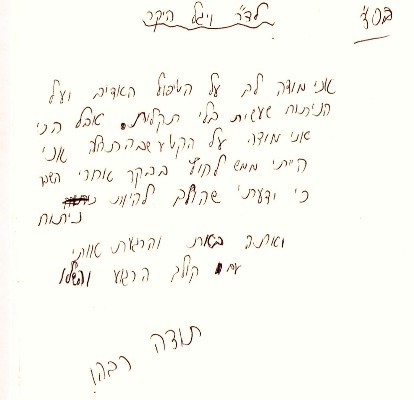 בס"ד
לד"ר ויגל היקר
אני מודה לך על הטיפול האדיב ועל
הניתוח שעשית בלי תקלות. אבל הכי
אני מודה על הקטע שבהתחלה אני
הייתי ממש לחוץ בבוקר אחרי השם
כי ידעתי שהולך להיות
ניתוח
ואתה באת והרגעת אותי
עם קולך הרגוע והשלו
תודה
רבה!